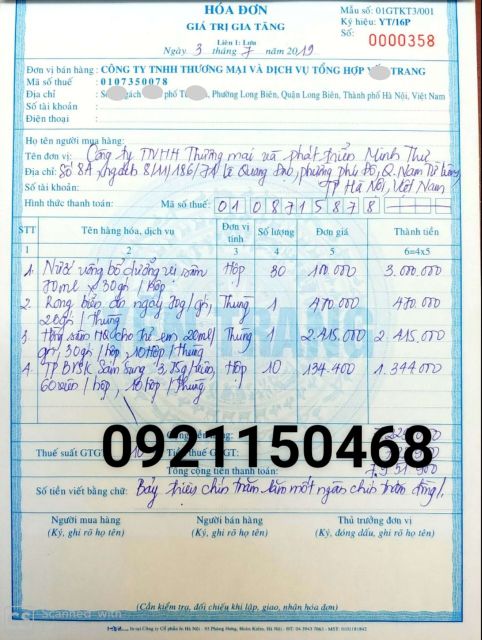 HÓA ĐƠN
GIÁ TRỊ GIA TĂNG
Liên 1: Lưu
Ngày 3 tháng 7 năm 2019
Mẫu số: 01GTKT3/001
Ký hiệu: YT/16P
Số: 0000358
Đơn vị bán hàng: CÔNG TY TNHH THƯƠNG MẠI VÀ DỊCH VỤ TỔNG HỢP TRANG
Mã số thuế : 0107350078
Địa chỉ : Phường Long Biên, Quận Long Biên, Thành phố Hà Nội, Việt Nam
Số tài khoản :
Điện thoại :
Họ tên người mua hàng:
Tên đơn vị: Công ty TNHH Thương mại và phát triển Minh Thư
Địa chỉ: Số 8A, ngách 8/11/186/71 Lê Quang Đạo, phường Phú Đô, Q. Nam Từ Liêm,
Số tài khoản: TP Hà Nội, Việt Nam
Hình thức thanh toán: Mã số thuế: 0108715878
STT Tên hàng hóa, dịch vụ Đơn vị tính Số lượng Đơn giá Thành tiền
1 2 3 4 5 6=4x5
1. Nước uống bổ dưỡng vị sâm Hộp 30 100.000 3.000.000
70ml x 30gr/hộp
2. Rong biển ăn ngay Thùng 1 470.000 470.000
Thùng
3. Hồng sâm HQ cho trẻ em 20ml/ Thùng 1 2.415.000 2.415.000
gr, 30gr/hộp, 10 hộp/thùng
4. TP BVSK Sâm nhung 3,75g/viên, Hộp 10 134.400 1.344.000
60viên/hộp, 10 hộp/thùng
Thuế suất GTGT: 10 Tiền thuế GTGT:
0921150468
Tổng cộng tiền thanh toán: 7.951.900
Số tiền viết bằng chữ: Bảy triệu chín trăm năm mốt ngàn chín trăm đồng
Người mua hàng Người bán hàng Thủ trưởng đơn vị
(Ký, ghi rõ họ tên) (Ký, ghi rõ họ tên) (Ký, đóng dấu, ghi rõ họ tên)
(Cần kiểm tra, đối chiếu khi lập, giao, nhận hóa đơn)
Scanned with